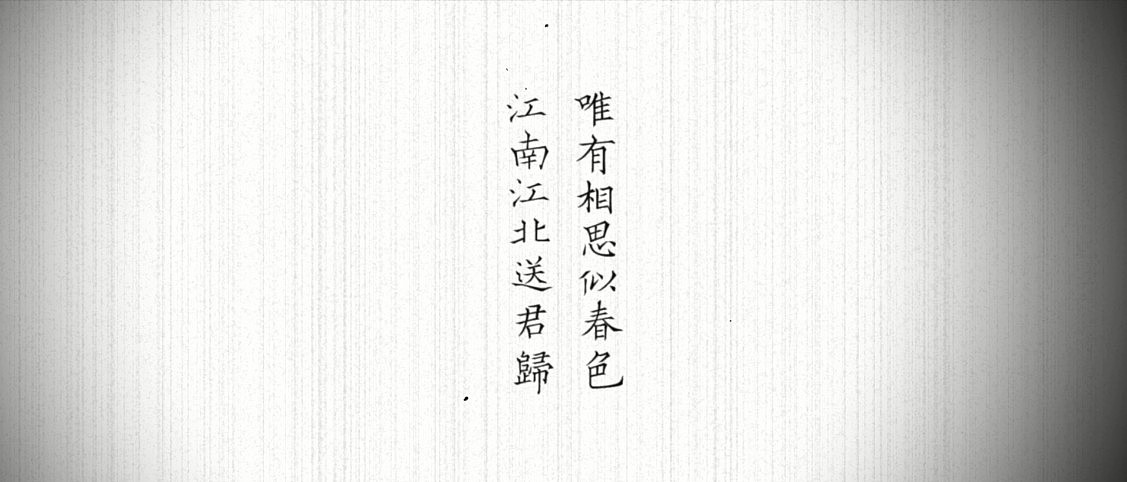 唯有相思似春色
江南江北送君歸